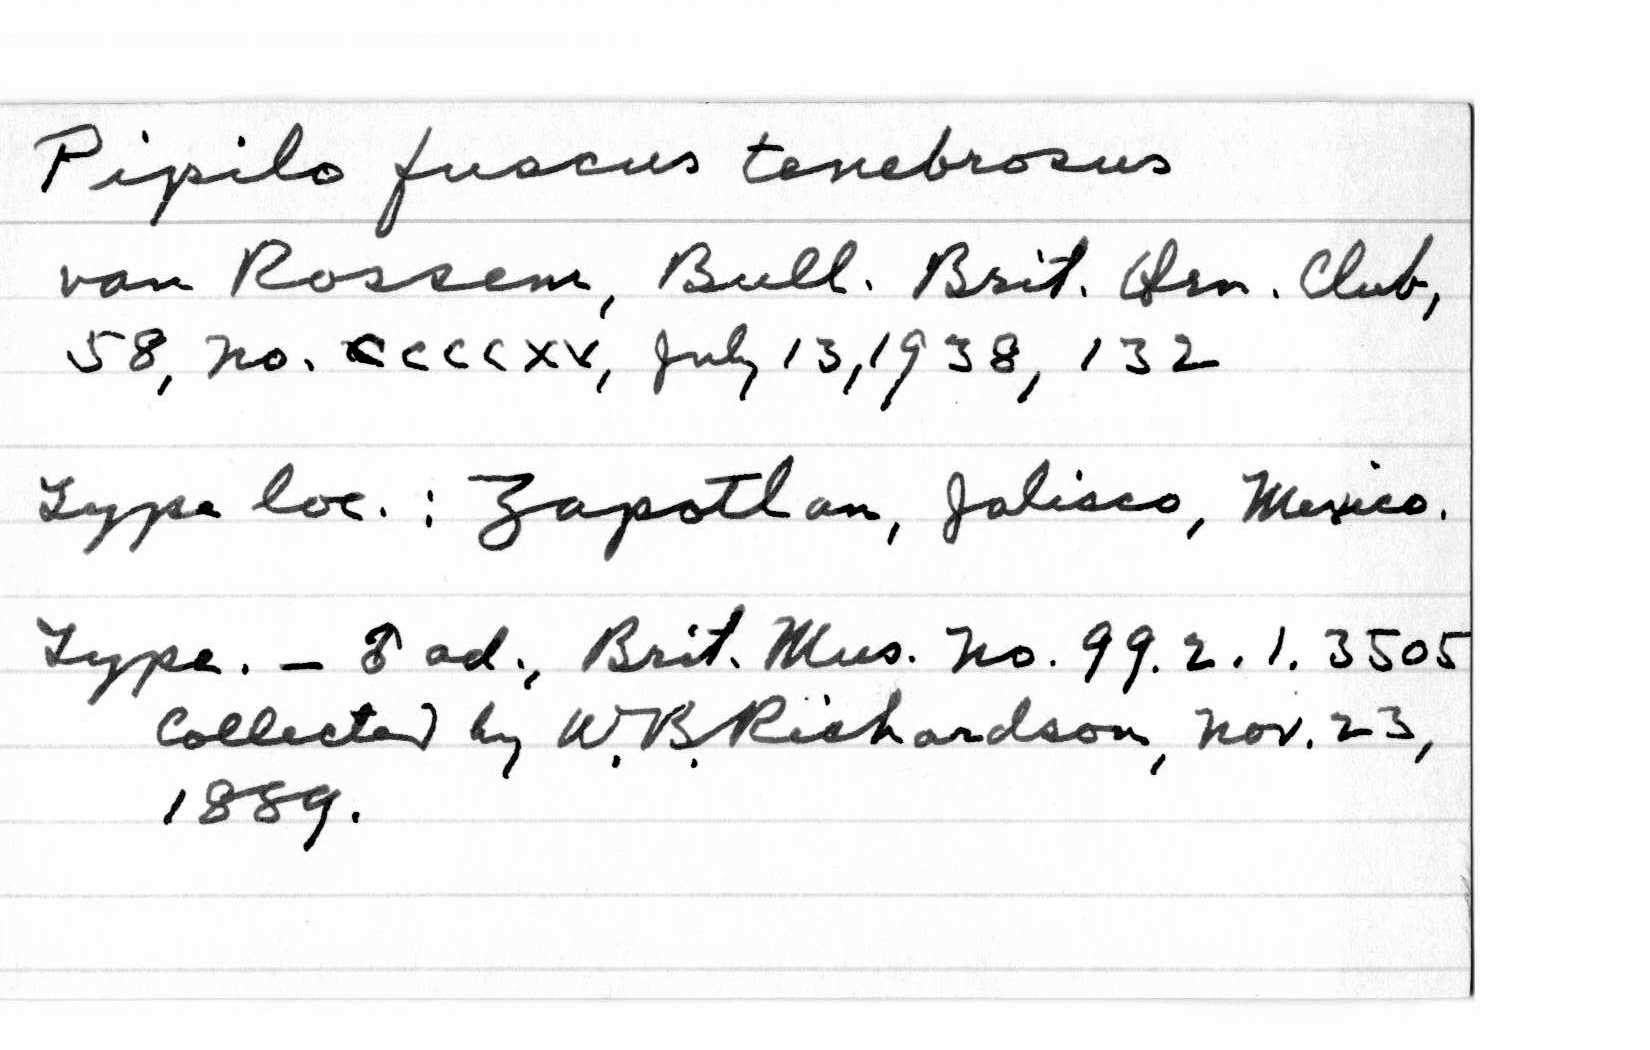 Pipilo fuscus tenebrosus
van Rossem, Bull. Brit. Orn. Club,
58, no. ccccxv, July 13, 1938, 132
Type loc. : Zapotlan, Jalisco, Mexico.
Type. – ♂ ad., Brit. Mus. No. 99.2.1.3505
Collected by W.B. Richardson, Nov. 23,
1889.